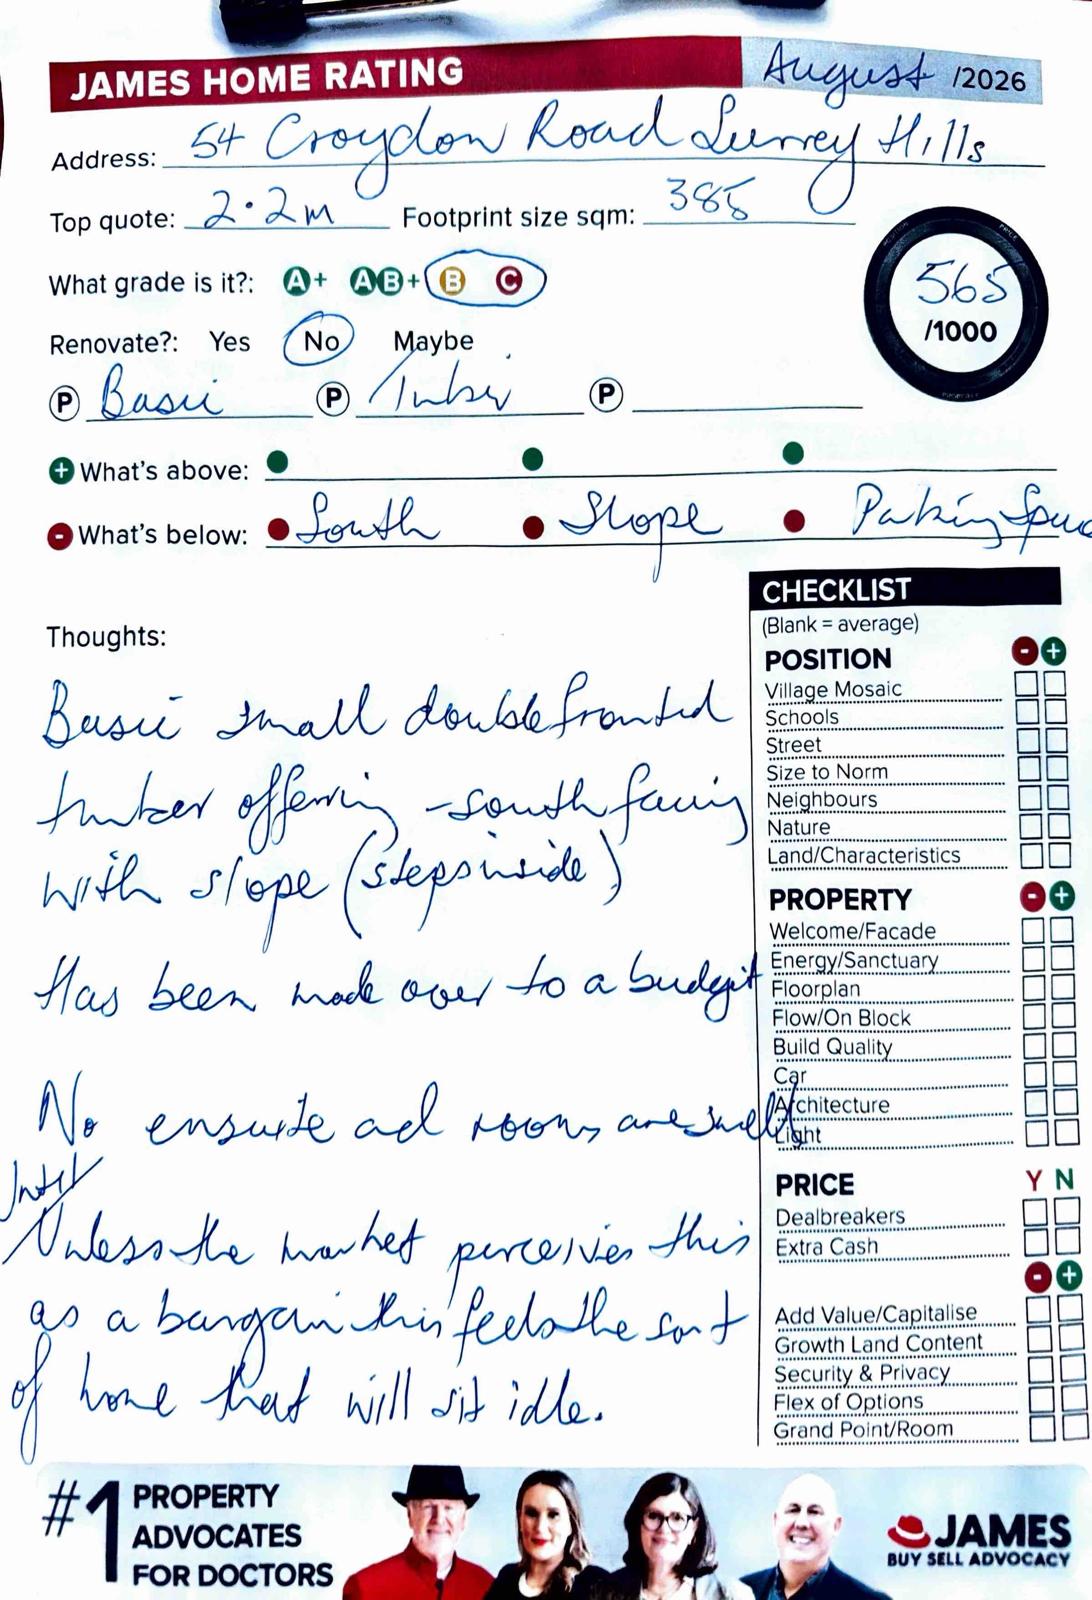 JAMES HOME RATING August /2026
Address: 54 Croydon Road Surrey Hills
Top quote: 2.2m Footprint size sqm: 385
What grade is it?: A+ AB+ B C
565
/1000
Renovate?: Yes No Maybe
P Basic P Timber P
+ What's above:
- What's below: South Slope Parking Space
CHECKLIST
(Blank = average)
POSITION - +
Village Mosaic
Schools
Street
Size to Norm
Neighbours
Nature
Land/Characteristics
PROPERTY - +
Welcome/Facade
Energy/Sanctuary
Floorplan
Flow/On Block
Build Quality
Car
Architecture
Light
PRICE Y N
Dealbreakers
Extra Cash
- +
Add Value/Capitalise
Growth Land Content
Security & Privacy
Flex of Options
Grand Point/Room
Thoughts:
Basic small double fronted
timber offering - south facing
with slope (steps inside)
Has been made over to a budget
No ensuite and rooms are small
Unless the market perceives this
as a bargain this feels the sort
of home that will sit idle.
#1 PROPERTY
ADVOCATES
FOR DOCTORS
JAMES
BUY SELL ADVOCACY